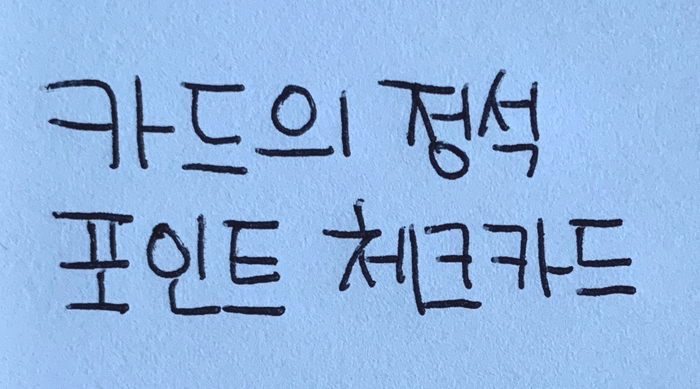 카드의 정석
포인트 체크카드